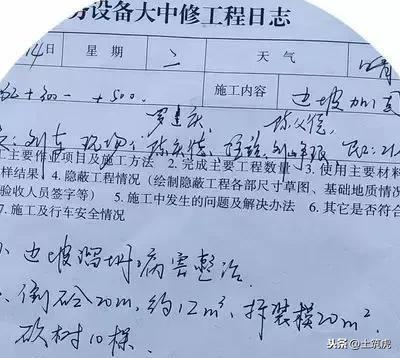 务设备大中修工程日志
14日 星期 二 天气 晴
+300- +500. 施工内容 边坡加固
刘东 现场:
工主要作业项目及施工方法 2.完成主要工程数量 3.使用主要材料
样结果 4.隐蔽工程情况(绘制隐蔽工程各部尺寸草图、基础地质情况
验收人员签字等) 5.施工中发生的问题及解决办法 6.其它是否符合
7.施工及行车安全情况
边坡溜坍病害整治
倒砼20m,约12m³,拆装模20m²
砍树10棵.
头条@土筑虎